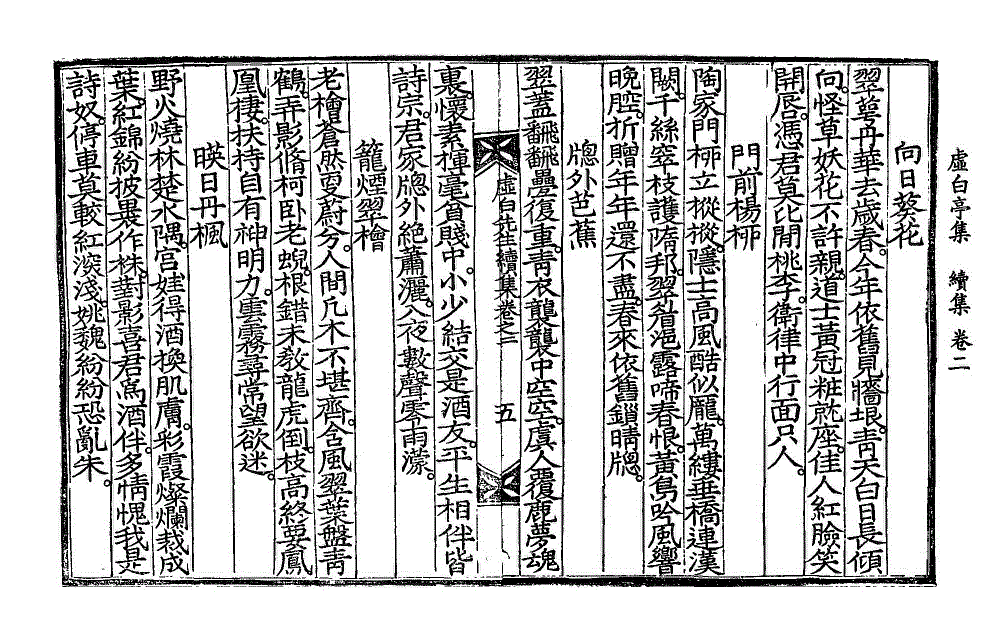 虛白亭集　續集 卷二
向日葵花
翠萼丹華去歲春。今年依舊見墻垠。靑天白日長傾
向。怪草妖花不許親。道士黃冠粧就座。佳人紅臉笑
開唇。憑君莫比閒桃李。衛律中行面只人。
門前楊柳
陶家門柳立摐摐。隱士高風酷似龐。萬縷垂橋連漢
闕。千絲窣枝護隋邦。翠眉浥露啼春恨。黃鳥吟風響
晩腔。折贈年年還不盡。春來依舊鎖晴牕。
牕外芭蕉
翠蓋飜飜疊復重。靑衣襲襲中空空。虞人覆鹿夢魂
虛白先生續集卷之二　五
裏。懷素揮毫貧賤中。小少結交是酒友。平生相伴皆
詩宗。君家牕外絶蕭灑。入夜數聲零雨濛。
籠煙翠檜
老檜蒼然夏蔚兮。人間凡木不堪齊。含風翠葉盤靑
鶴。弄影脩柯卧老蜺。根錯未敎龍虎倒。枝高終要鳳
凰棲。扶持自有神明力。雲霧尋常望欲迷。
暎日丹楓
野火燒林楚水隅。宮娃得酒換肌膚。彩霞燦爛裁成
葉。紅錦紛披畢作株。對影喜君爲酒伴。多情愧我是
詩奴。停車莫較紅深淺。姚魏紛紛恐亂朱。